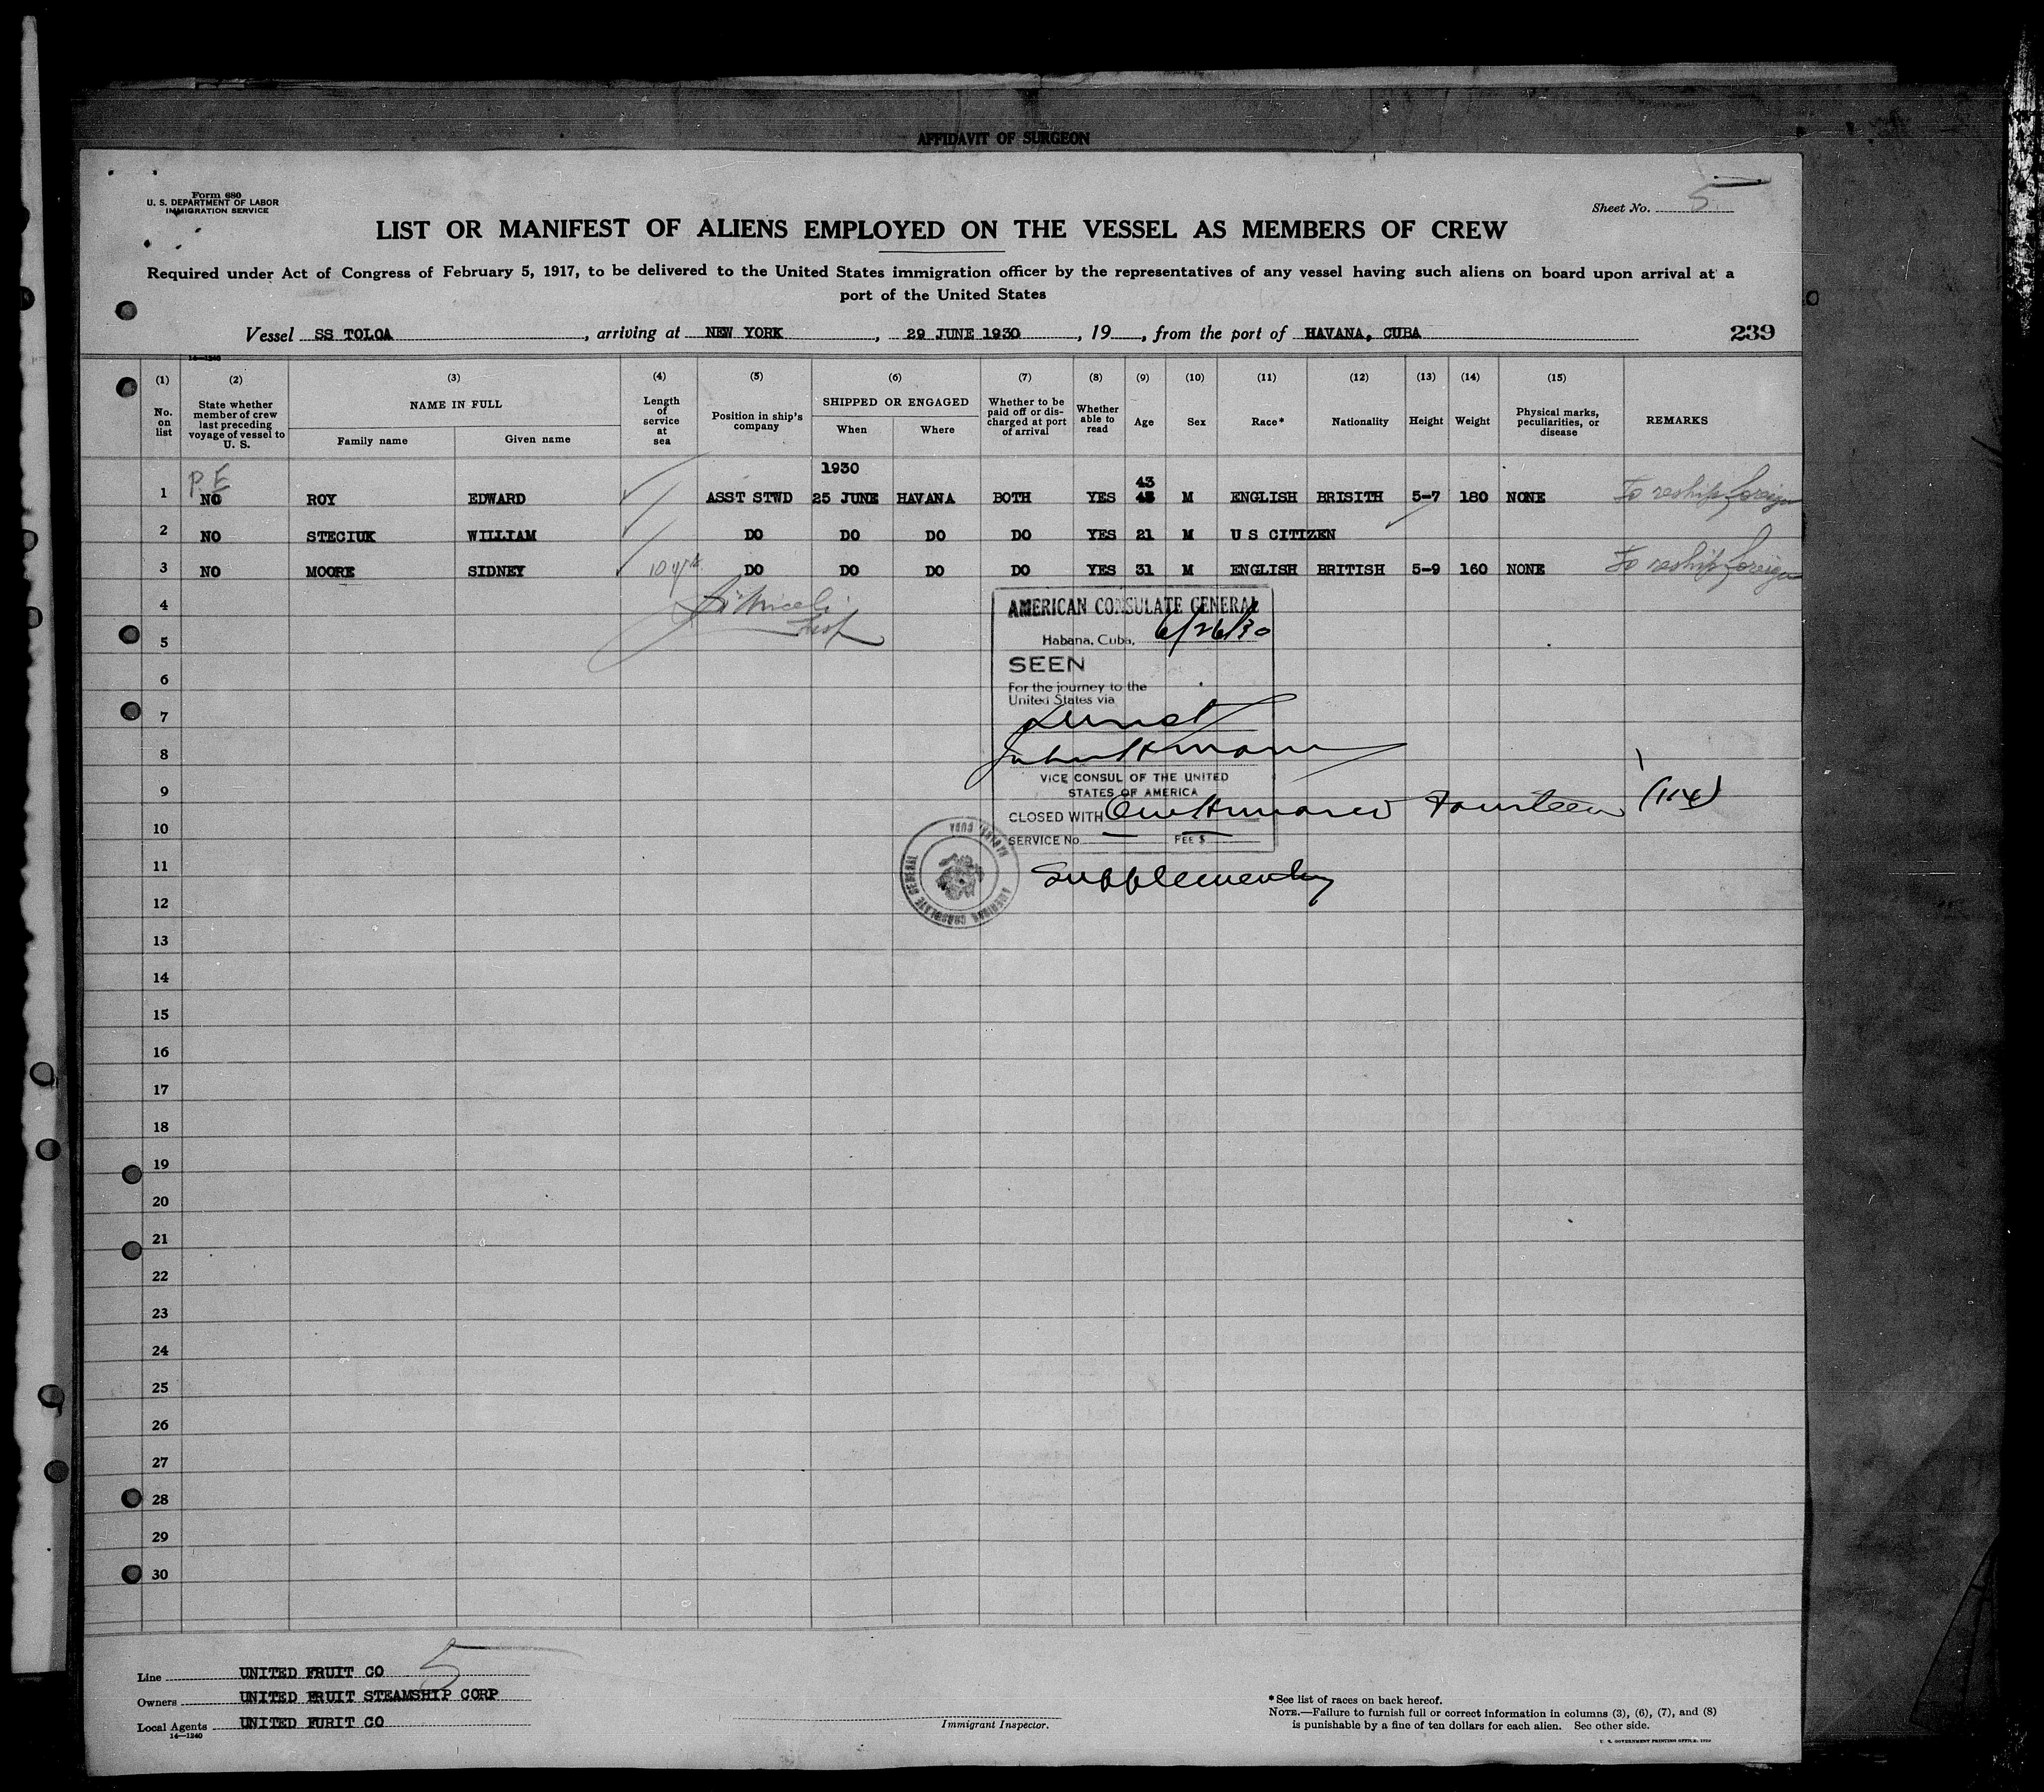 AFFIDAVIT OF SURGEON
Form 680
U. S. DEPARTMENT OF LABOR
IMMIGRATION SERVICE
Sheet No. 5
LIST OR MANIFEST OF ALIENS EMPLOYED ON THE VESSEL AS MEMBERS OF CREW
Required under Act of Congress of February 5, 1917, to be delivered to the United States immigration officer by the representatives of any vessel having such aliens on board upon arrival at a
port of the United States
Vessel SS TOLOA, arriving at NEW YORK, 29 JUNE 1930, 19, from the port of HAVANA, CUBA 239
14—1240
(1) (2) (3) (4) (5) (6) (7) (8) (9) (10) (11) (12) (13) (14) (15)
No. on list
State whether member of crew last preceding voyage of vessel to U. S.
NAME IN FULL
Family name Given name
Length of service at sea
Position in ship's company
SHIPPED OR ENGAGED
When Where
Whether to be paid off or discharged at port of arrival
Whether able to read
Age
Sex
Race*
Nationality
Height
Weight
Physical marks, peculiarities, or disease
REMARKS
P.E. 1930 43
1 NO ROY EDWARD ASST STWD 25 JUNE HAVANA BOTH YES 45 M ENGLISH BRISITH 5-7 180 NONE To reship foreign
2 NO STECIUK WILLIAM DO DO DO DO YES 21 M U S CITIZEN
3 NO MOORE SIDNEY 10 yrs DO DO DO DO YES 31 M ENGLISH BRITISH 5-9 160 NONE To reship foreign
4
5
6
7
8
9
10
11
12
13
14
15
16
17
18
19
20
21
22
23
24
25
26
27
28
29
30
AMERICAN CONSULATE GENERAL
Habana, Cuba, 6/26/30
SEEN
For the journey to the
United States via
Direct
VICE CONSUL OF THE UNITED
STATES OF AMERICA
CLOSED WITH One Hundred Fourteen (114)
SERVICE No. FEE $
Supplementary
AMERICAN CONSULATE GENERAL HABANA, CUBA
Line UNITED FRUIT CO 5
Owners UNITED FRUIT STEAMSHIP CORP
Local Agents UNITED FURIT CO
14—1240
Immigrant Inspector.
*See list of races on back hereof.
NOTE.—Failure to furnish full or correct information in columns (3), (6), (7), and (8)
is punishable by a fine of ten dollars for each alien. See other side.